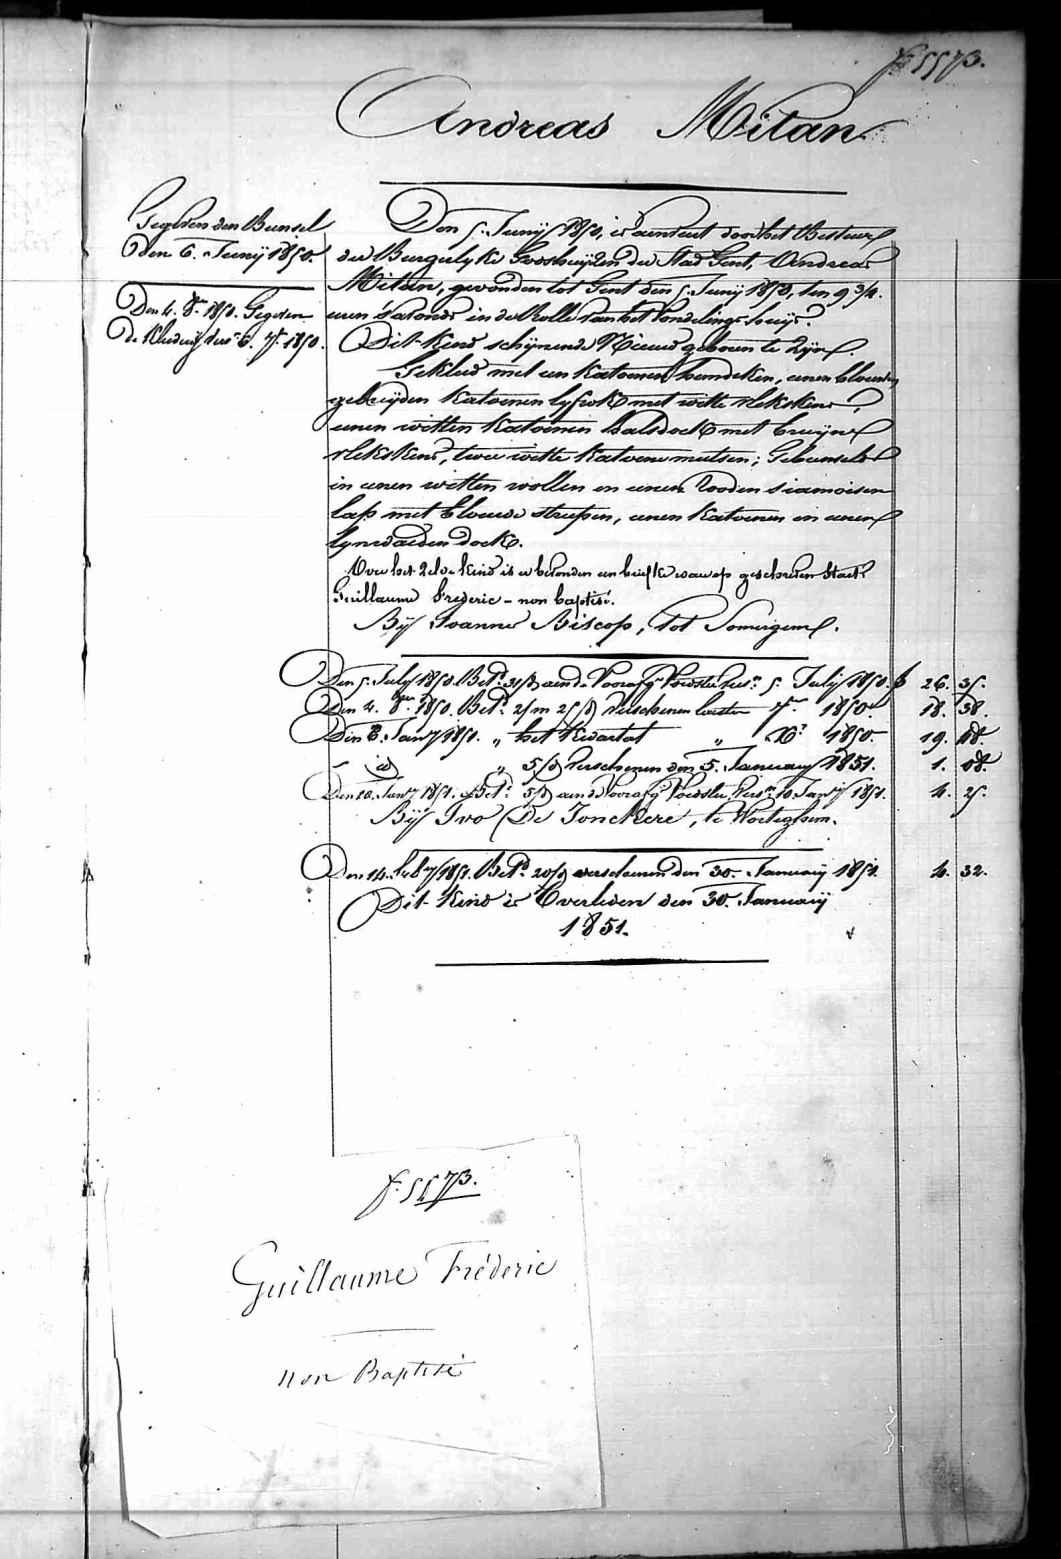 fº 5573.
Andreas Mitan.
Gegeven den Bunsel
den 6. Junij 1850.
Den 4. 8ber 1850. Gegeven
de Kleding vers 6. 7ber 1850.
Den 5. Junij 1850, is aenveert door het Bestuer
der Burgelyke Godshuijzen der Stad Gent, Andreas
Mitan, gevonden tot Gent den 5. Junij 1850, ten 9 3/4.
uren 's avonds in de Rolle van het Vondelings huijs.
Dit Kind schijnende Nieuw geboren te zijn.
Gekleed met een Katoenen hemdeken, eenen blouwen
gebreijden Katoenen lyfrok met witte vlekskens,
eenen witten Katoenen halsdoek met bruijne
vlekskens, twee witte Katoene mutsen; Gebunseld
in eenen witten wollen en eenen Rooden siamoisen
lap met blouwe streepen, eenen Katoenen en eenen
lynwaeden doek.
Over het zelve kind is er bevonden een briefke waer op geschreven staet:
Guillaume Frederic - non baptisé.
Bij Joannes Biscop, tot Somergem.
Den 5. July 1850. Betd. 31/d aen de Voorafge Voedster vers. 5. July 1850. f 26. 35.
Den 4. 8ber 1850. Betd. 2/m 25/d verschenen laesten 7ber 1850. 18. 38.
Den 8. Janry 1851. „ het Kwartal „ Xr 1850. 19. 18.
- id „ 5/d verschenen den 5. January 1851. 1. 08.
Den 10. Janry 1851. Betd. 5/d aen de Voorafge Voedster vers. 10. Janry 1851. 4. 25.
Bij Ivo De Jonckere, te Worteghem.
Den 14. Feb7 1851. Betd 20/d verschenen den 30. Januarij 1851. 4. 32.
Dit Kind is Overleden den 30. Januarij
1851.
f. 5573.
Guillaume Fréderic
non Baptisé